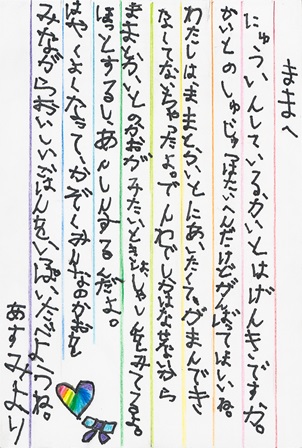 ままへ
にゅういんしているかいとはげんきですか。
かいとのしゅじゅつはたいへんだけどがんばってほしいね。
わたしはままとかいとにあいたくてがまんでき
なくてないちゃったよ。でんわでしかはなせないから
ままとかいとのかおがみたいときは、しゃしんをみてるよ。
ほっとするし、あんしんするんだよ。
はやくよくなって、かぞくみんなのかおを
みながらおいしいごはんをいっぱいたべようね。
あすみより